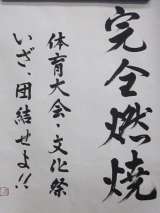 完全燃焼
体育大会・文化祭
いざ、団結せよ!!